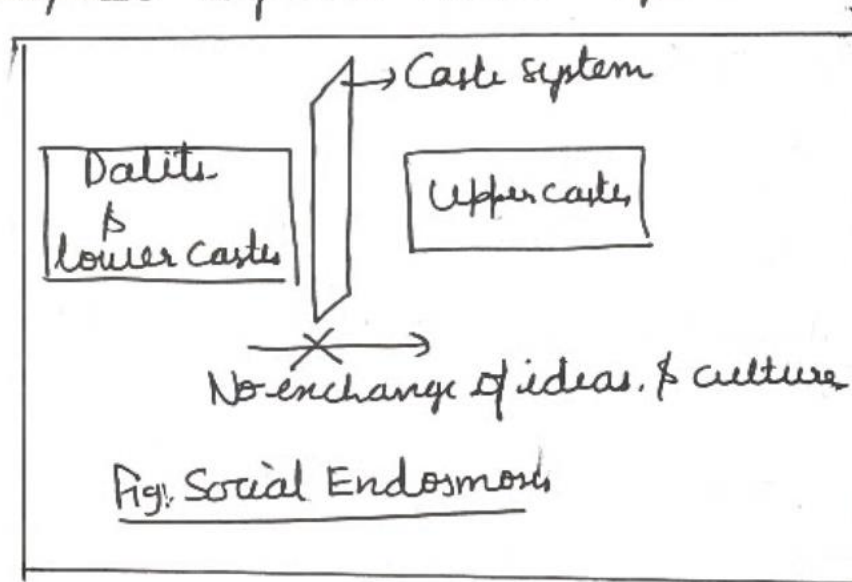 Caste system
Dalits
&
lower castes
Upper castes
No exchange of ideas. & culture
Fig: Social Endosmosis